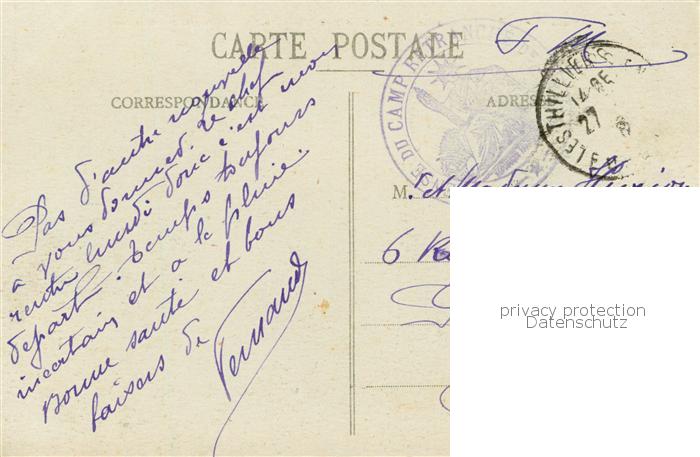 CARTE POSTALE
F M
CORRESPONDANCE
ADRES
Pas d'autre nouvelle
à vous donner. Le chef
rentre lundi donc c'est mon
départ. Temps toujours
incertain et a la pluie.
Bonne santé et bons
baisers de
Fernand
DU CAMP RETRANCHÉ DE
LES THILLIERS
14
27
M. et Madame
6 R
privacy protection
Datenschutz